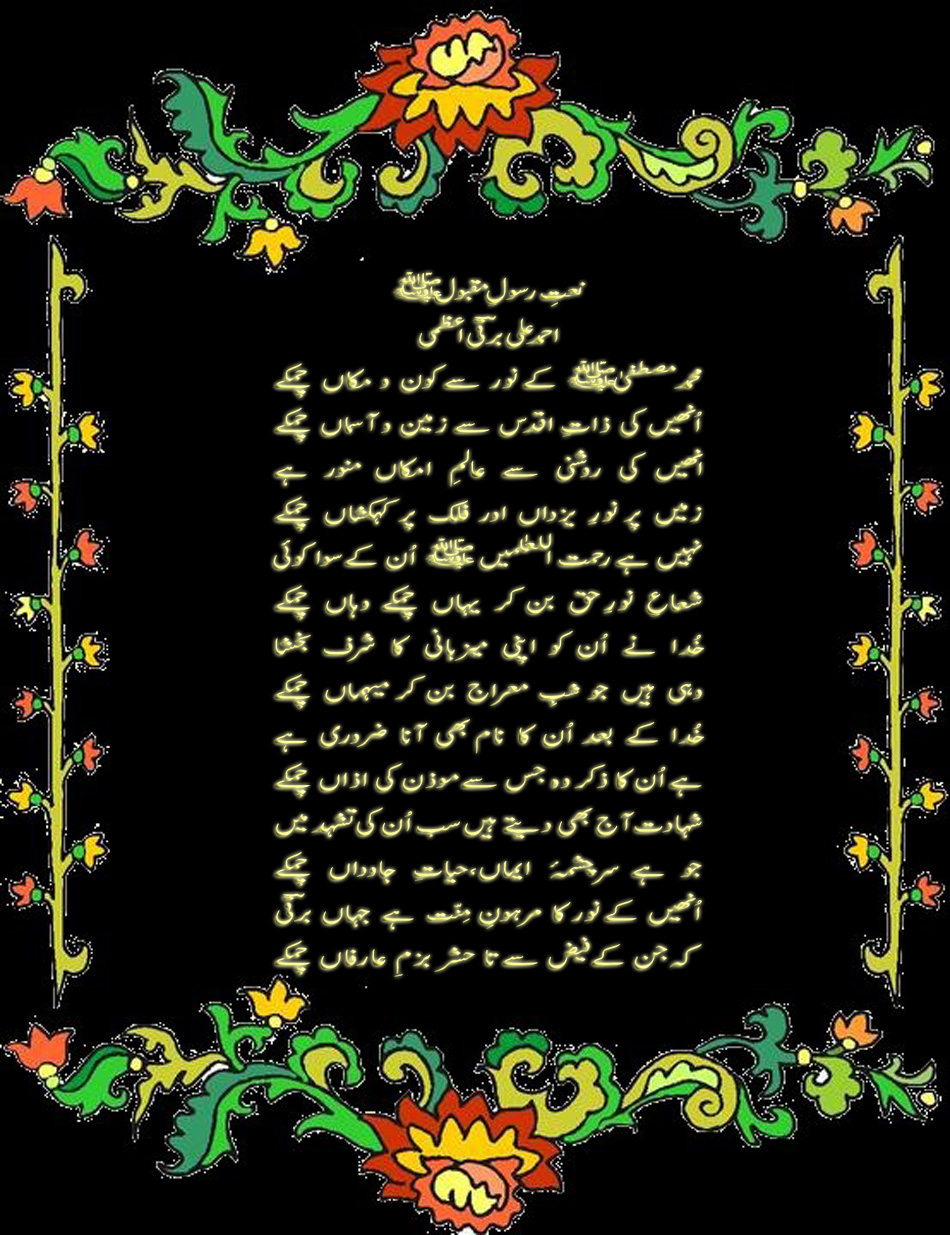 نعتِ رسولِ مقبولﷺ
احمد علی برقیؔ اعظمی
محمد مصطفیٰﷺ کے نور سے کون و مکاں چمکے
اُنھیں کی ذاتِ اقدس سے زمین و آسماں چمکے
اُنھیں کی روشنی سے عالمِ امکاں منور ہے
زمیں پر نورِ یزداں اور فلک پر کہکشاں چمکے
نہیں ہے رحمت اللعلمیںﷺ اُن کے سوا کوئی
شعاعِ نورِ حق بن کر یہاں چمکے وہاں چمکے
خُدا نے اُن کو اپنی میزبانی کا شرف بخشا
وہی ہیں جو شبِ معراج بن کر میہماں چمکے
خُدا کے بعد اُن کا نام بھی آنا ضروری ہے
ہے اُن کا ذکر وہ جس سے موذن کی اذاں چمکے
شہادت آج بھی دیتے ہیں سب اُن کی تشہد میں
جو ہے سرچشمۂ ایماں،حیاتِ جاوداں چمکے
اُنھیں کے نور کا مرہونِ مِنّت ہے جہاں برقیؔ
کہ جن کے فیض سے تا حشر بزمِ عارفاں چمکے